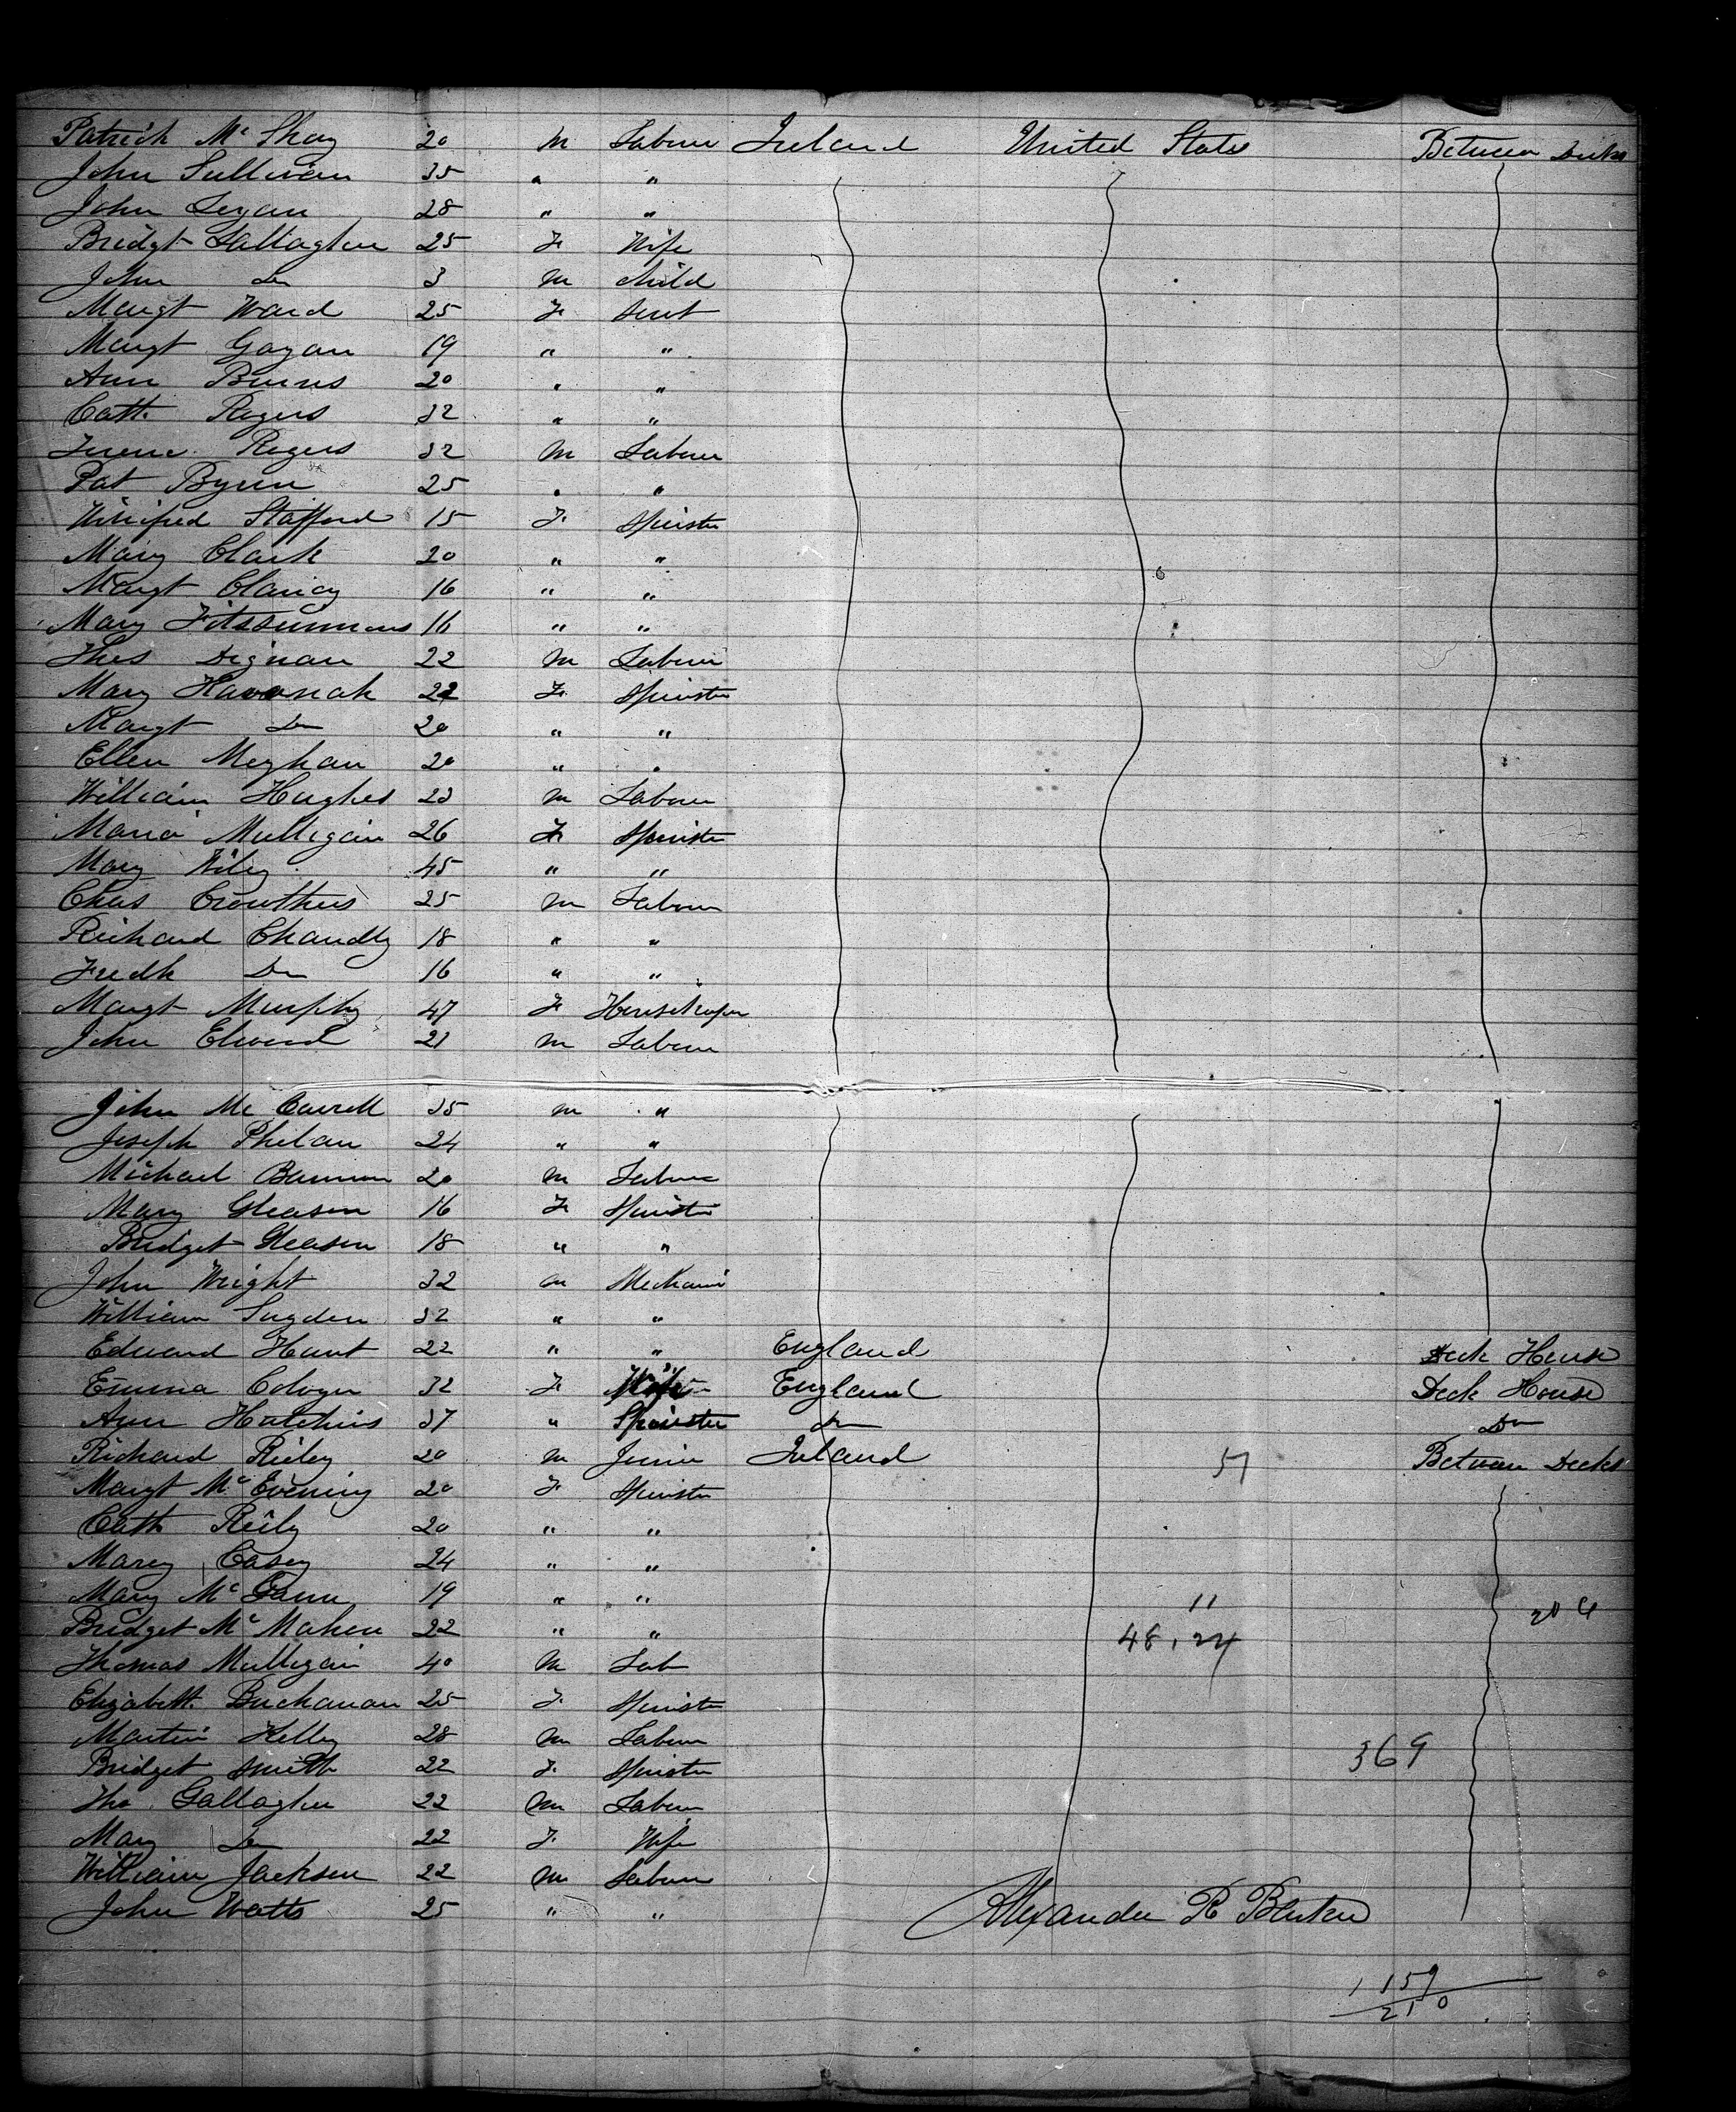 Patrick Mc Shay 20 m Labour Ireland United States Between Decks
John Sullivan 35 " "
John Legan 28 " "
Bridgt Gallagher 25 F. Wife
John Do 3 m Child
Margt Ward 25 F. Servt
Margt Gagan 19 " "
Ann Burns 20 " "
Cath. Rogers 32 " "
Rogers 32 m Labour
Pat Byrne 25 " "
Winifred Stafford 15 F. Spinster
Mary Clark 20 " "
Margt Clancy 16 " "
Mary Fitzsimmons 16 " "
Thos Dignan 22 m Labour
Mary Kavanah 22 F. Spinster
Margt Do 20 " "
Ellen Meghan 20 " "
William Hughes 23 m Labour
Maria Mulligan 26 F. Spinster
Mary Wiley 45 " "
Chas Crowthers 25 m Labour
Richard Chandly 18 " "
Fredk Do 16 " "
Margt Murphy 47 F Housekeeper
John Elwood 21 m Labour
John Mc Carroll 35 m "
Joseph Phelan 24 " "
Michael Bannon 20 m Labour
Mary Gleason 16 F Spinster
Bridget Gleason 18 " "
John Wright 32 m Mechanic
William Sugden 32 " "
Edward Hunt 22 " " England Deck House
Emma Cologn 32 F. Wife England Deck House
Ann Hutchins 37 " Spinster Do Do
Richard Rieley 20 m Joiner Ireland 57 Between Decks
Margt Mc Evening 20 F. Spinster
Cath Reily 20 " "
Marey Casey 24 " "
Mary Mc Gann 19 " " 11
Bridget Mc Mahon 22 " " 48, 24
Thomas Mulligan 40 m Lab
Elizabeth. Buchanan 25 F. Spinster
Martin Kelly 28 m Labour
Bridget Smith 22 F. Spinster 369
Tho. Gallagher 22 m Labour
Mary Do 22 F. Wife
William Jackson 22 m Labour
John Watts 25 " " Alexander R
159
210